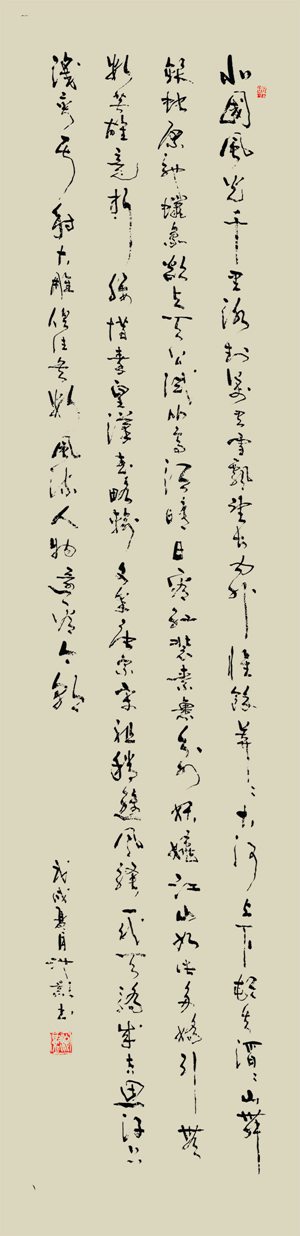 北國風光千里冰封萬里雪飄望長内外惟餘莽〻大河上下頓失滔〻山舞
銀蛇原馳蠟象欲與天公試比高須晴日看紅裝素裹分外妖嬈江山如此多嬌引無
數英雄竞折腰惜秦皇漢武略輸文采唐宗宋祖稍遜風騷一代天驕成吉思汗只
識彎弓射大雕俱往矣數風流人物還看今朝
戊戌夏月書